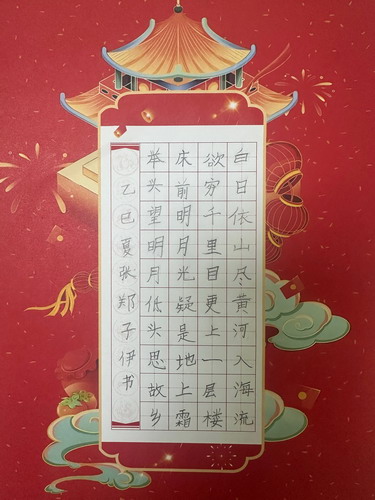 白日依山尽黄河入海流
欲穷千里目更上一层楼
床前明月光疑是地上霜
举头望明月低头思故乡
乙巳夏张郑子伊书